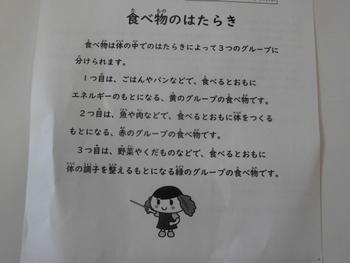 食べ物のはたらき
食べ物は体の中でのはたらきによって３つのグループに
分けられます。
１つ目は、ごはんやパンなどで、食べるとおもに
エネルギーのもとになる、黄のグループの食べ物です。
２つ目は、魚や肉などで、食べるとおもに体をつくる
もとになる、赤のグループの食べ物です。
３つ目は、野菜やくだものなどで、食べるとおもに
体の調子を整えるもとになる緑のグループの食べ物です。